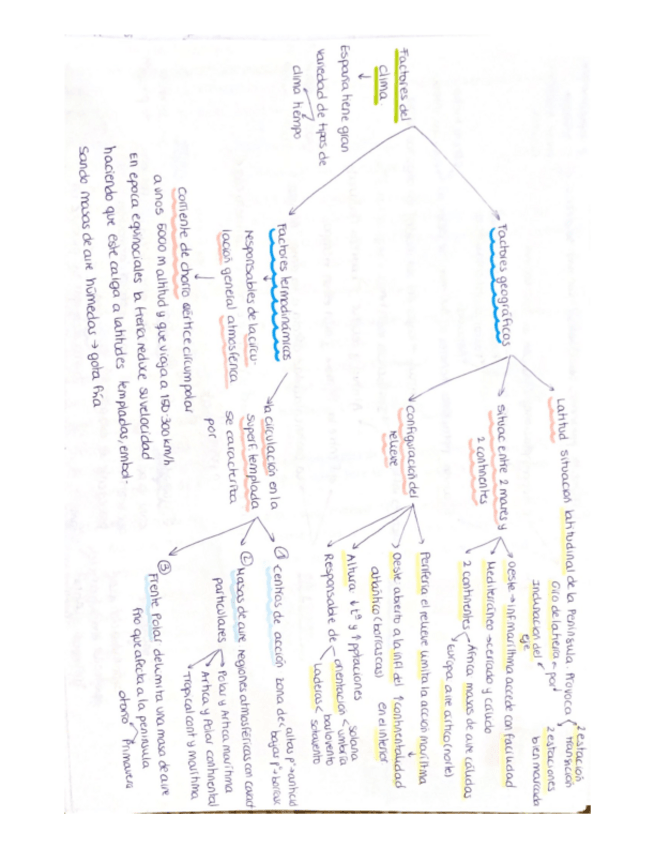 Factores del
clima.
España tiene gran
variedad de tipos de
clima tiempo
Factores geográficos
Latitud situacion latitudinal de la Peninsula. Provoca
2 estacion
transicion
2 estaciones
bien marcada
Giro de la tierra por
inclinacion del
eje
situac entre 2 mares y
2 continentes
oeste → inf maritima accede con facilidad
Mediterráneo → cerrado y cálido
2 continentes
África masas de aire cálidas
Europa aire ártico (norte)
Configuración del
relieve
Periferia el relieve limita la acción marítima
↑ continentalidad
en el interior
Oeste abierto a la infl del
atlántico (borrascas)
Altura: ↓ Tª y ↑ pptaciones
Responsable de
orientacion < solana
umbria
Laderas < barlovento
sotavento
Factores termodinámicos
responsables de la circu-
lación general atmosferica
corriente de chorro vórtice circumpolar
a unos 5000 m altitud y que viaja a 150-300 km/h
En epoca equinociales la tierra reduce su velocidad
haciendo que este caiga a latitudes templadas, embol-
sando masas de aire húmedas → gota fría
la circulación en la
superf. templada
se caracteriza
por
① Centros de acción zona de
altas pº → anticicl
bajas pº → borrasc
② Masas de aire regiones atmosféricas con caract
particulares
Polar y Artica maritima
Artica y Polar continental
Tropical cont y maritima
③ Frente Polar delimita una masa de aire
frio que afecta a la peninsula
otoño
Primavera